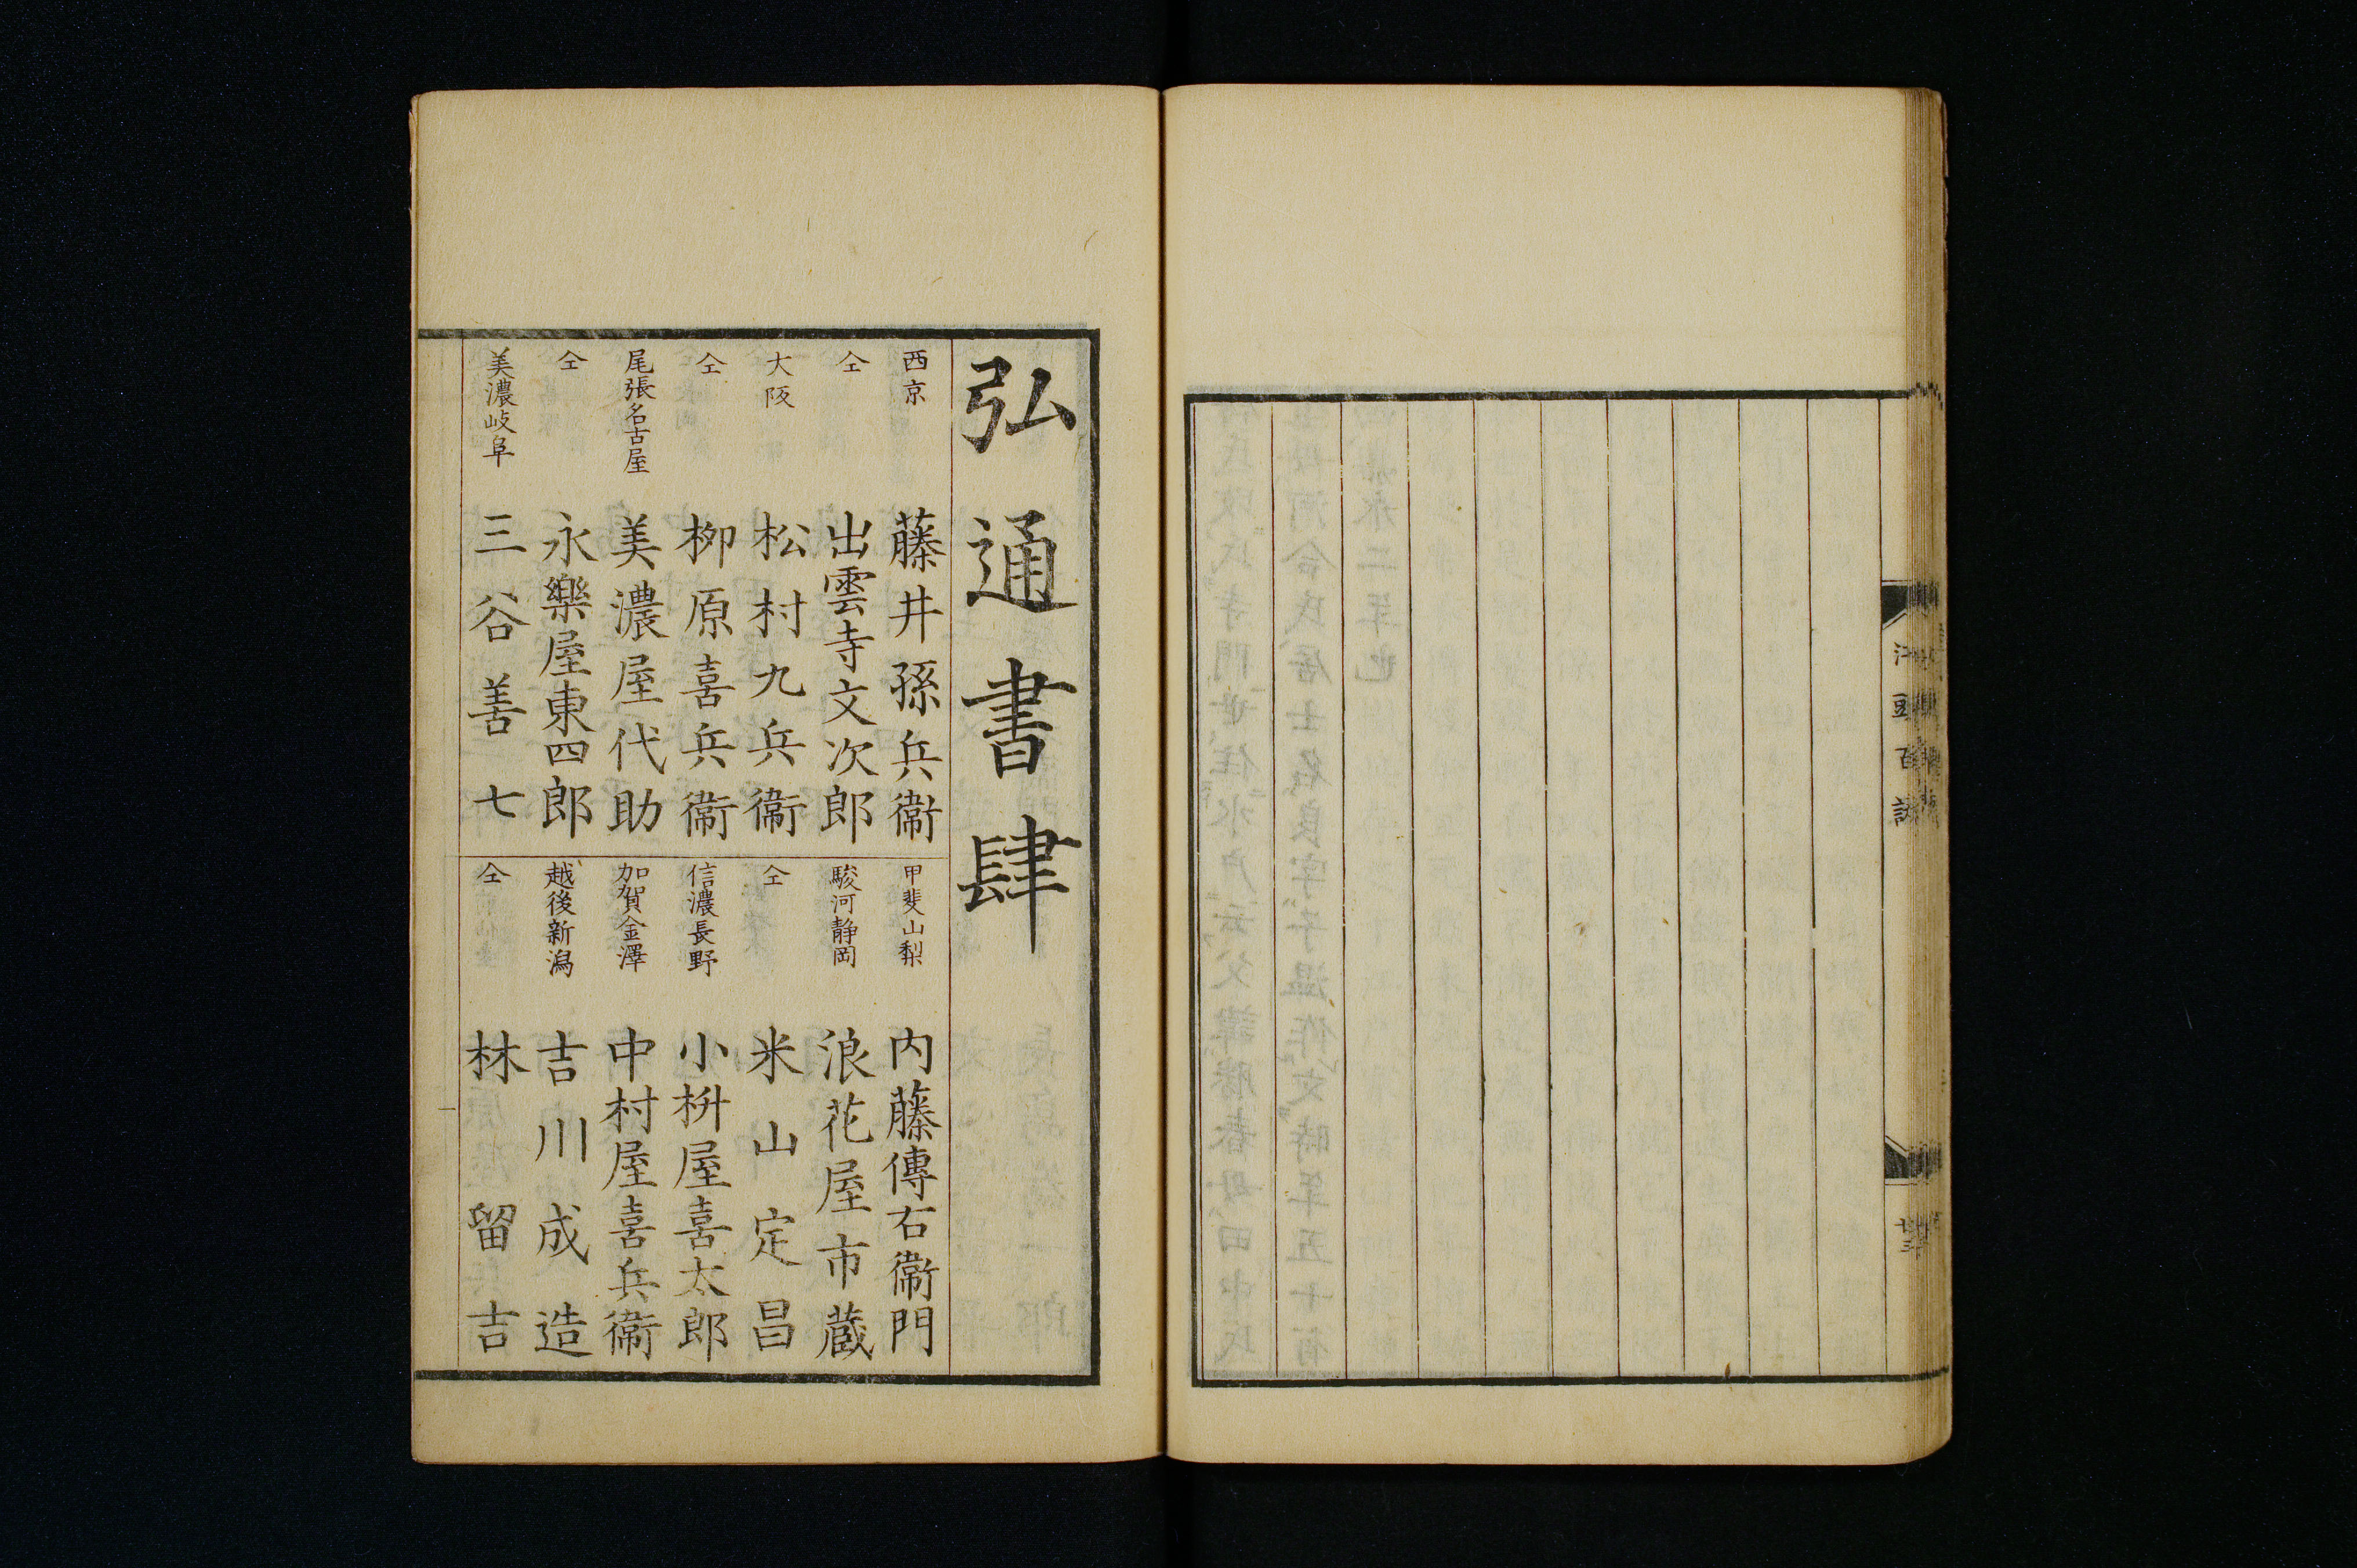 弘通書肆
西京 藤井孫兵衞
仝 出雲寺文次郎
大阪 松村九兵衞
仝 栁原喜兵衞
尾張名古屋 美濃屋代助
仝 永樂屋東四郎
美濃岐阜 三谷善七
甲斐山梨 内藤傳右衞門
駿河静岡 浪花屋市蔵
仝 米山定昌
信濃長野 小枡屋喜太郎
加賀金澤 中村屋喜兵衞
越後新潟 吉川成造
仝 林留吉